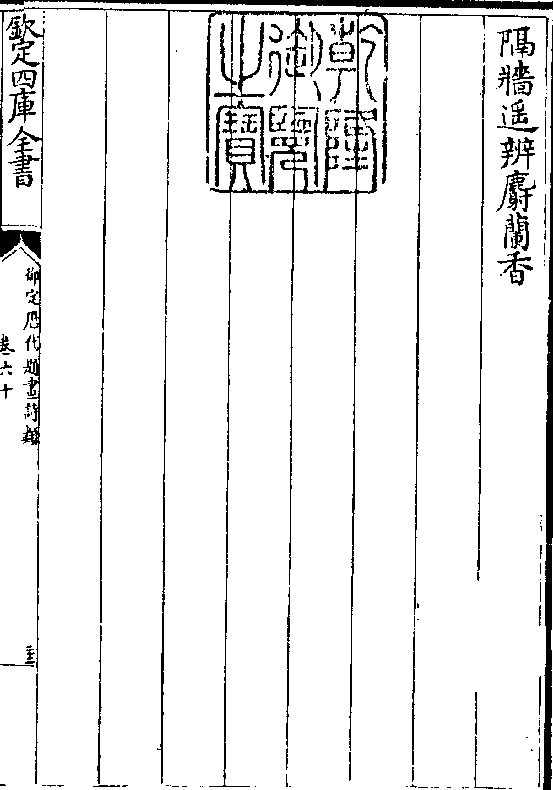 隔牆遥辨麝蘭香
乾隆御覽之寶
欽定四庫全書
御定歴代題畫詩類
卷六十